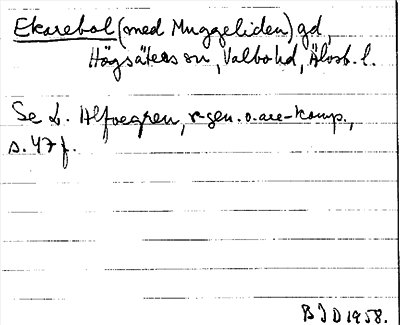 Ekarebol (med Muggeliden), gd,
Högsäters sn, Valbo hd, Älvsb. l.
Se L. Alfvegren, r-gen. o. are-komp.,
s. 47 f.
BJD 1958.